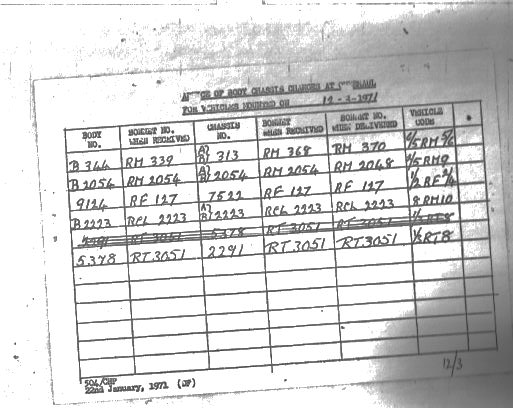 OF BODY CHASSIS CHANGES AT OVERHAUL
FOR VEHICLES LICENSED ON 12-3-1971
BODY NO. BONNET NO. WHEN RECEIVED CHASSIS NO. BONNET WHEN RECEIVED BONNET NO. WHEN DELIVERED VEHICLE CODE
B 344 RM 339 313 RM 368 RM 370 RM 5/6
B 2054 RM 2054 2054 RM 2054 RM 2048 RM9
9124 RF 127 7522 RF 127 RF 127 1/2 RF 2/4
B 2223 RCL 2223 2223 RCL 2223 RCL 2223 RM10
RT 3051 5378 RT 3051 RT 3051 RT8
5378 RT 3051 2291 RT 3051 RT 3051 RT8
12/3
504/CHP
22nd January, 1971